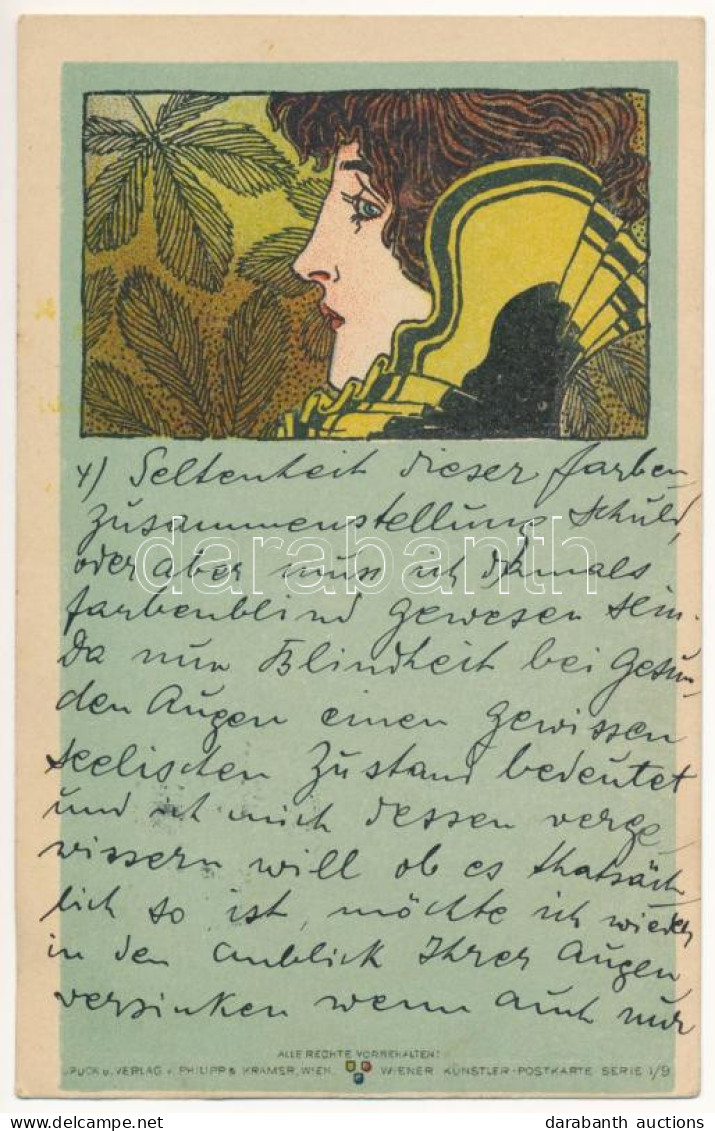 4) Seltenheit dieser farben
zusammenstellung schuld,
oder aber muss ich damals
farbenblind gewesen sein.
Da nun Blindheit bei gesun
den Augen einen gewissen
seelischen Zustand bedeutet
und ich mich dessen verge
wissern will ob es thatsäch
lich so ist, möchte ich wieder
in den Anblick Ihrer Augen
versinken wenn auch nur
darabanth
ALLE RECHTE VORBEHALTEN!
DRUCK U. VERLAG V. PHILIPP & KRAMER, WIEN. WIENER KÜNSTLER-POSTKARTE SERIE I/9
www.delcampe.net
darabanth auctions